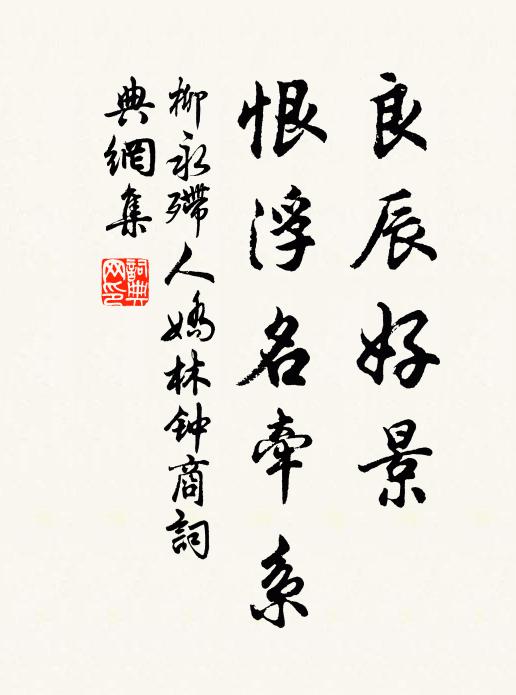 良辰好景
恨浮名牵系
柳永殢人嬌林钟商詞
典網集
詞典网印